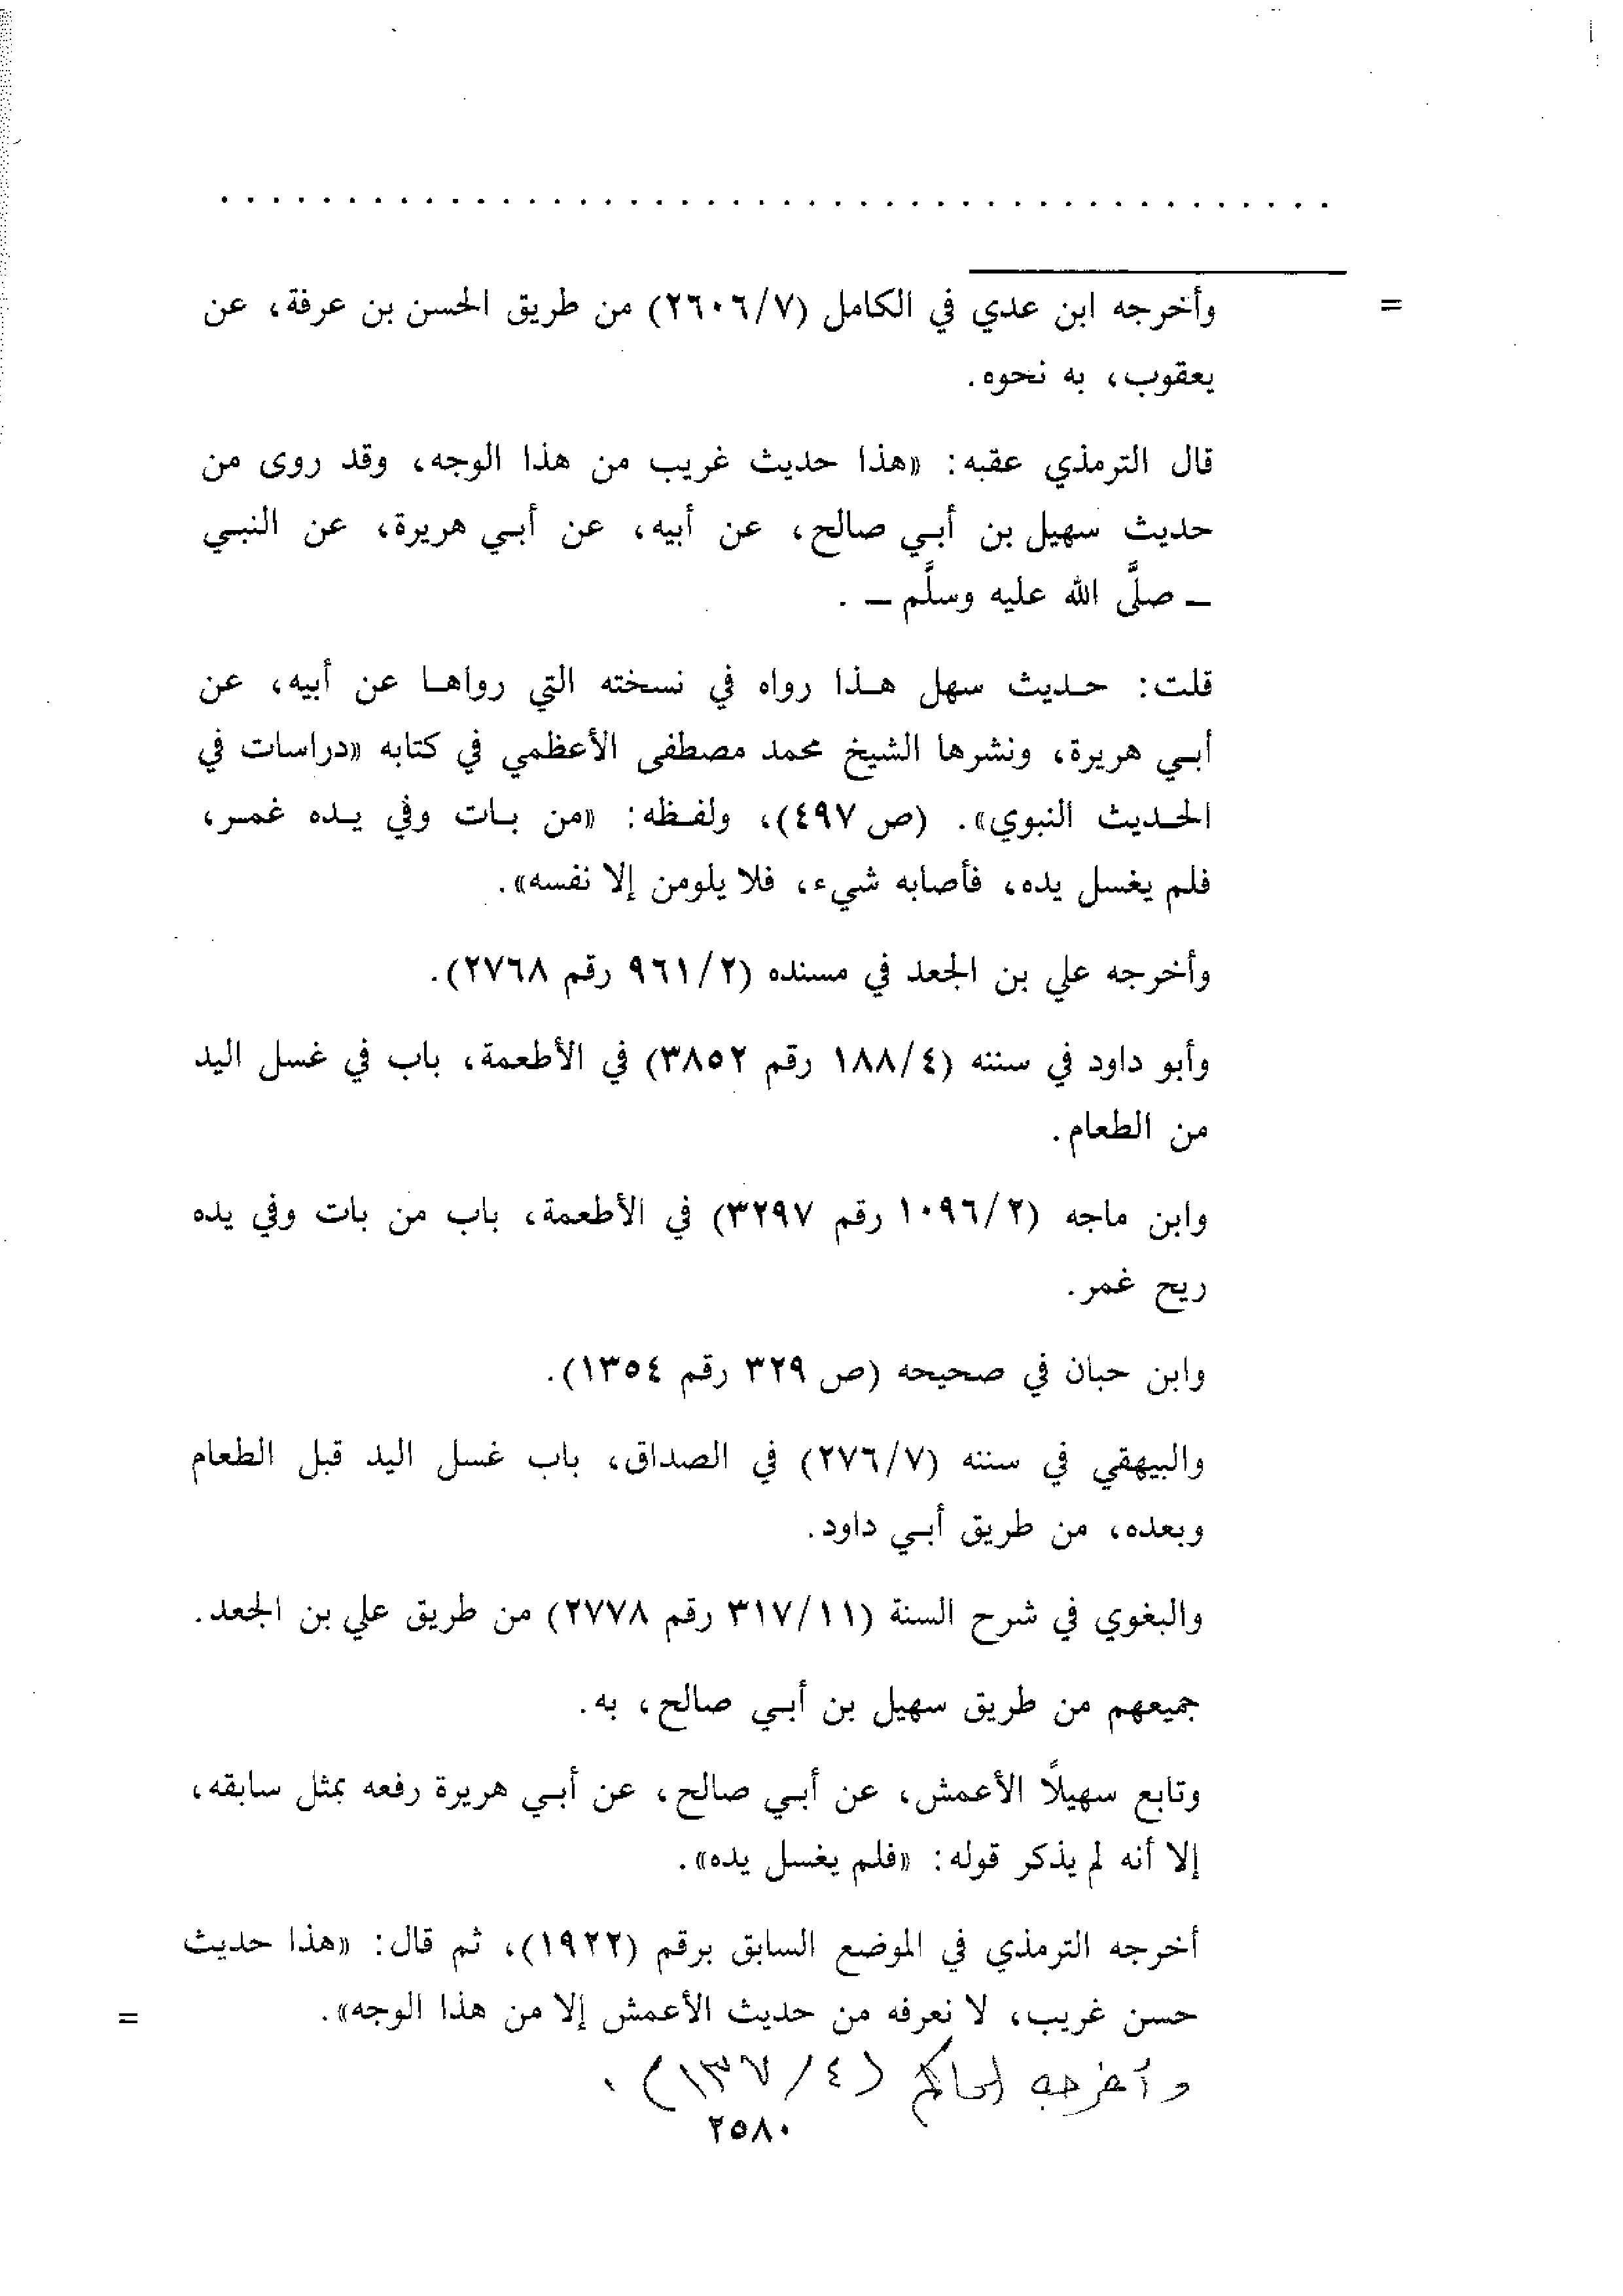 . . . . . . . . . . . . . . . . . . . . . . . . . . . . . . . . . . . . . . . . . . . .
= وأخرجه ابن عدي في الكامل (٢٦٠٦/٧) من طريق الحسن بن عرفة، عن
يعقوب، به نحوه.
قال الترمذي عقبه: «هذا حديث غريب من هذا الوجه، وقد روى من
حديث سهيل بن أبي صالح، عن أبيه، عن أبي هريرة، عن النبي
ـ صلَّى الله عليه وسلَّم ـ .
قلت: حديث سهل هذا رواه في نسخته التي رواها عن أبيه، عن
أبي هريرة، ونشرها الشيخ محمد مصطفى الأعظمي في كتابه «دراسات في
الحديث النبوي». (ص ٤٩٧)، ولفظه: «من بات وفي يده غمر،
فلم يغسل يده، فأصابه شيء، فلا يلومن إلا نفسه».
وأخرجه علي بن الجعد في مسنده (٩٦١/٢ رقم ٢٧٦٨).
وأبو داود في سننه (١٨٨/٤ رقم ٣٨٥٢) في الأطعمة، باب في غسل اليد
من الطعام.
وابن ماجه (١٠٩٦/٢ رقم ٣٢٩٧) في الأطعمة، باب من بات وفي يده
ريح غمر.
وابن حبان في صحيحه (ص ٣٢٩ رقم ١٣٥٤).
والبيهقي في سننه (٢٧٦/٧) في الصداق، باب غسل اليد قبل الطعام
وبعده، من طريق أبي داود.
والبغوي في شرح السنة (٣١٧/١١ رقم ٢٧٧٨) من طريق علي بن الجعد.
جميعهم من طريق سهيل بن أبي صالح، به.
وتابع سهيلًا الأعمش، عن أبي صالح، عن أبي هريرة رفعه بمثل سابقه،
إلا أنه لم يذكر قوله: «فلم يغسل يده».
أخرجه الترمذي في الموضع السابق برقم (١٩٢٢)، ثم قال: «هذا حديث
حسن غريب، لا نعرفه من حديث الأعمش إلا من هذا الوجه». =
وأخرجه الحاكم (١٣٧/٤).
٢٥٨٠